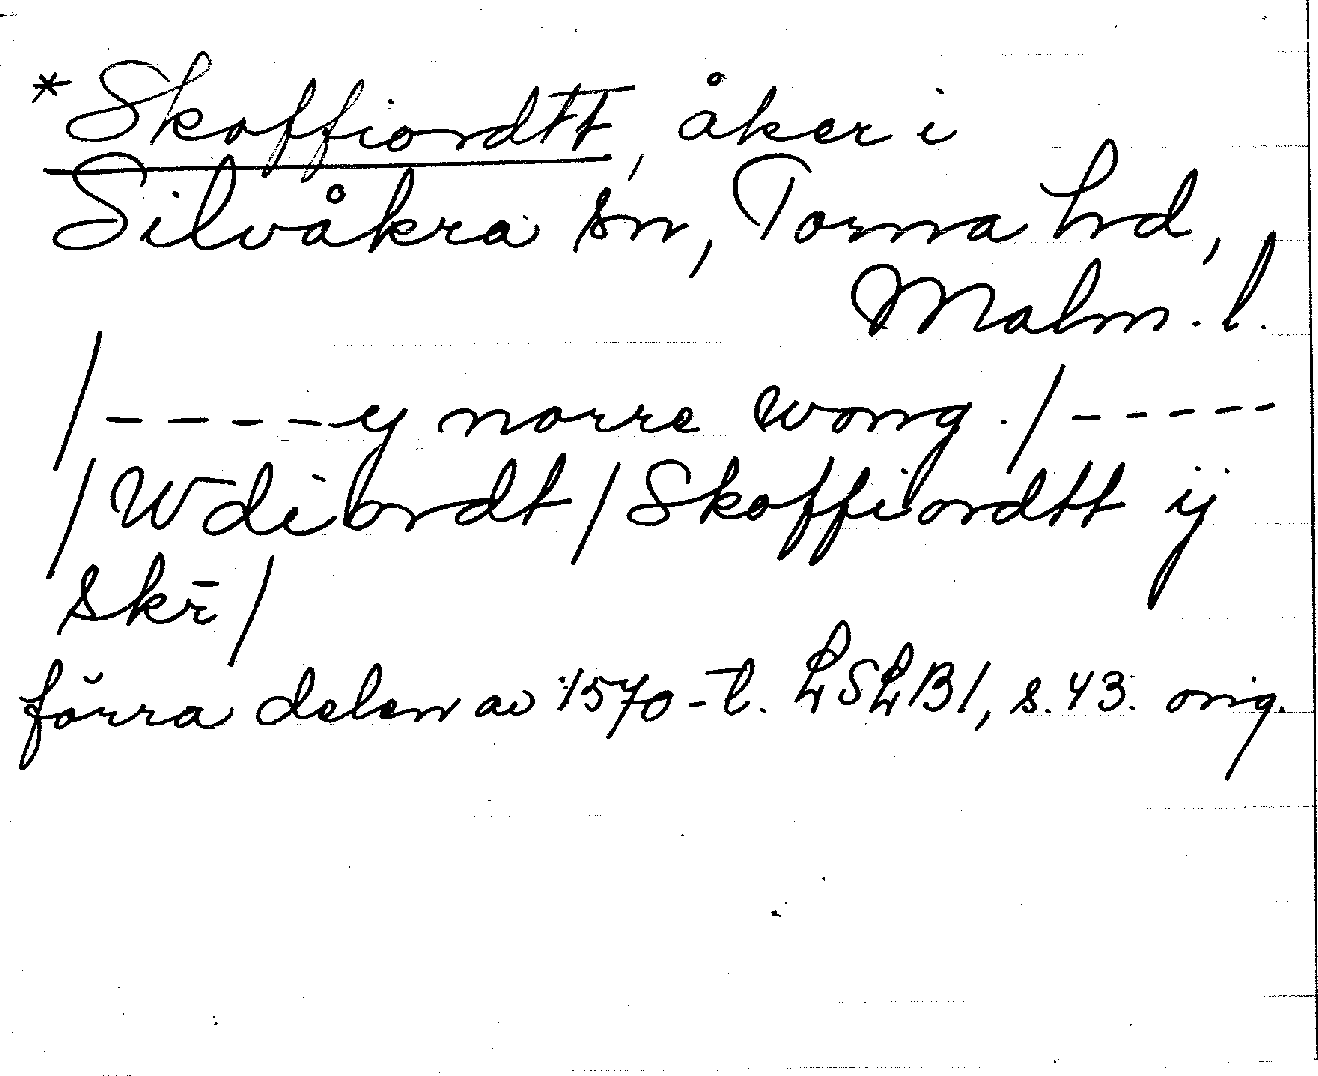 *Skoffiordtt, åker i
Silvåkra sn, Torna hd,
Malm. l.
/----y norre wong./-----
/Wdiordt/Skoffiordtt ij
skr̄/
förra delen av 1570-t. LSLB1, s. 43. orig.